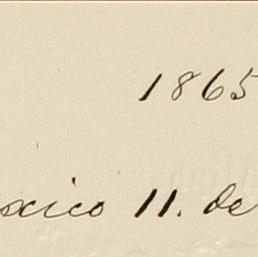 1865
xico 11. de